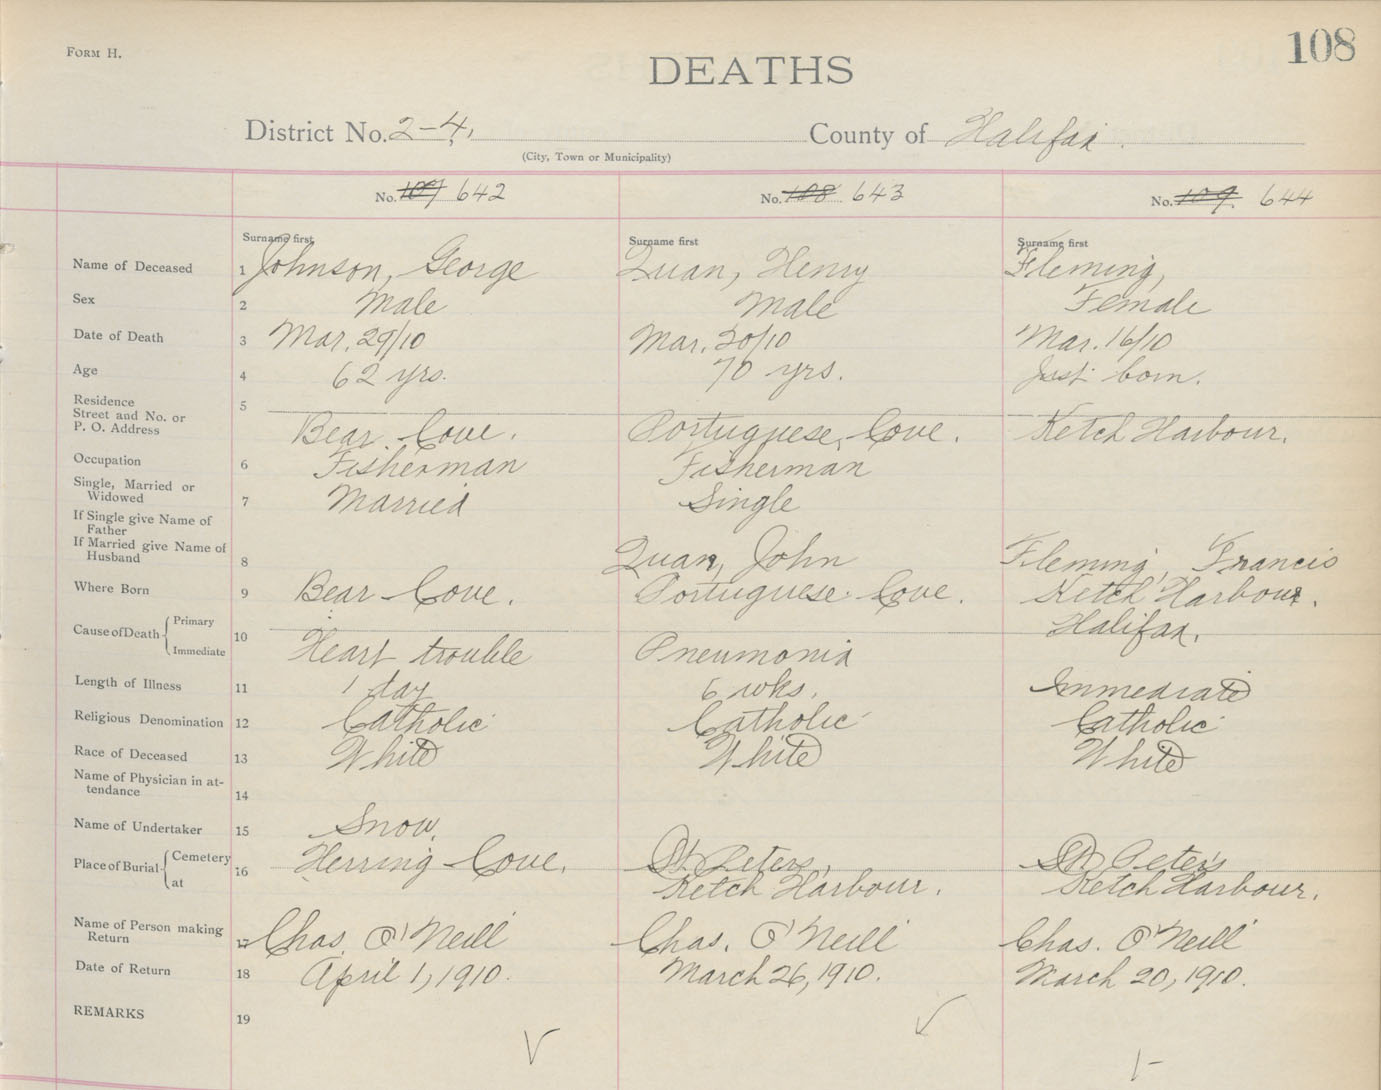 FORM H.
108
DEATHS
District No. 2-4, County of Halifax.
(City, Town or Municipality)
No. 107 642 No. 108 643 No. 109. 644
Surname first Surname first Surname first
Name of Deceased 1 Johnson, George Quan, Henry Fleming,
Sex 2 Male Male Female
Date of Death 3 Mar. 29/10 Mar. 20/10 Mar. 16/10
Age 4 62 yrs. 70 yrs. Just born.
Residence 5
Street and No. or
P. O. Address Bear Cove. Portuguese Cove. Ketch Harbour.
Occupation 6 Fisherman Fisherman
Single, Married or
Widowed 7 Married Single
If Single give Name of
Father
If Married give Name of
Husband 8 Quan, John Fleming, Francis
Where Born 9 Bear Cove. Portuguese Cove. Ketch Harbour.
Halifax.
Cause of Death Primary 10
Immediate Heart trouble Pneumonia
Length of Illness 11 1 day 6 wks. Immediate
Religious Denomination 12 Catholic Catholic Catholic
Race of Deceased 13 White White White
Name of Physician in at-
tendance 14
Name of Undertaker 15 Snow.
Place of Burial Cemetery 16 Herring Cove. St. Peters, St. Peter's
at Ketch Harbour. Ketch Harbour.
Name of Person making
Return 17 Chas. O'Neill Chas. O'Neill Chas. O'Neill
Date of Return 18 April 1, 1910. March 26, 1910. March 20, 1910.
REMARKS 19